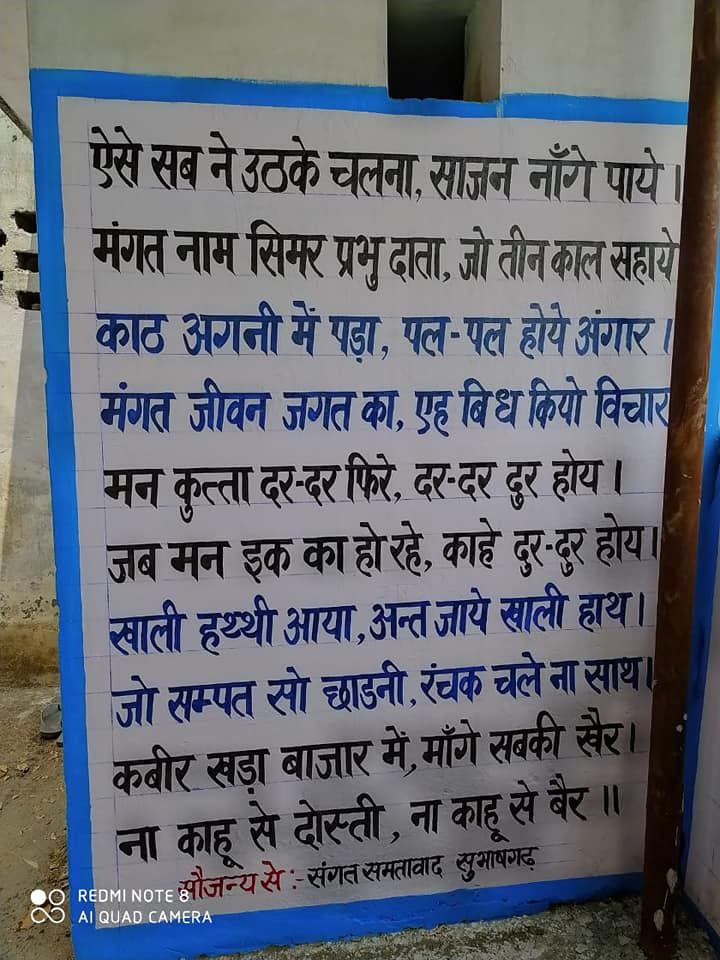 ऐसे सब ने उठके चलना, साजन नाँगे पाये।
मंगत नाम सिमर प्रभु दाता, जो तीन काल सहाये
काठ अगनी में पड़ा, पल-पल होये अंगार।
मंगत जीवन जगत का, एह बिध कियो विचार
मन कुत्ता दर-दर फिरे, दर-दर दुर होय।
जब मन इक का हो रहे, काहे दुर-दुर होय।
खाली हथ्थी आया, अन्त जाये खाली हाथ।
जो सम्पत सो छाडनी, रंचक चले ना साथ।
कबीर खड़ा बाजार में, माँगे सबकी खैर।
ना काहू से दोस्ती, ना काहू से बैर॥
सौजन्य से :- संगत समतावाद सुभाषगढ़
REDMI NOTE 8
AI QUAD CAMERA